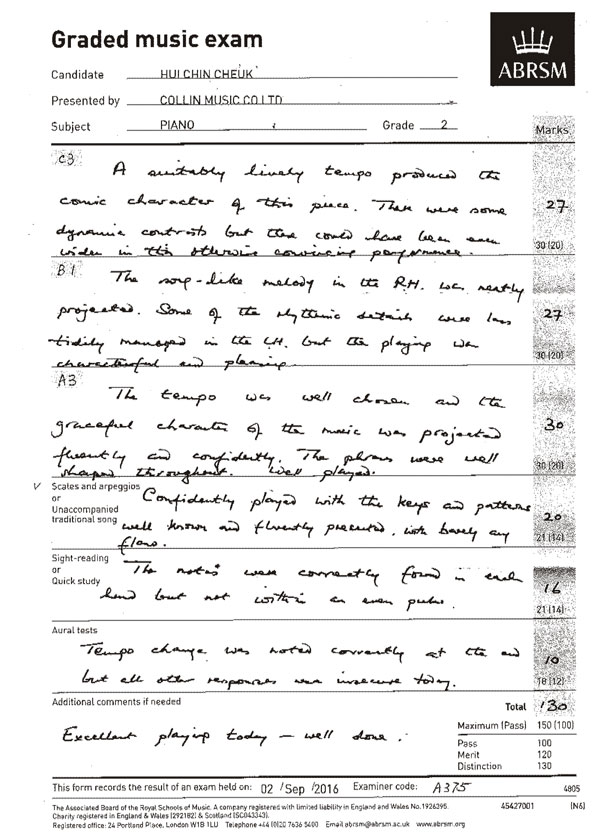 Graded music exam
ABRSM
Candidate HUI CHIN CHEUK
Presented by COLLIN MUSIC CO LTD
Subject PIANO Grade 2
Marks
C3
A suitably lively tempo produced the
comic character of this piece. There were some 27
dynamic contrasts but these could have been even
wider in this otherwise convincing performance. 30 (20)
B1
The song-like melody in the RH. was neatly
projected. Some of the rhythmic details were less 27
tidily managed in the LH. but the playing was
characterful and pleasing. 30 (20)
A3
The tempo was well chosen and the
graceful character of the music was projected 30
fluently and confidently. The phrases were well
shaped throughout. Well played. 30 (20)
Scales and arpeggios
or
Unaccompanied
traditional song
Confidently played with the keys and patterns
well known and fluently presented, with barely any 20
flaws. 21 (14)
Sight-reading
or
Quick study
The notes were correctly found in each
hand but not within an even pulse. 16
21 (14)
Aural tests
Tempo change was noted correctly at the end 10
but all other responses were insecure today. 18 (12)
Additional comments if needed
Excellent playing today – well done.
Total 130
Maximum (Pass) 150 (100)
Pass 100
Merit 120
Distinction 130
This form records the result of an exam held on: 02 / Sep / 2016 Examiner code: A375 4805
The Associated Board of the Royal Schools of Music. A company registered with limited liability in England and Wales No.1926395. 45427001 (N6)
Charity registered in England & Wales (292182) & Scotland (SC043343).
Registered office: 24 Portland Place, London W1B 1LU Telephone +44 (0)20 7636 5400 Email abrsm@abrsm.ac.uk www.abrsm.org